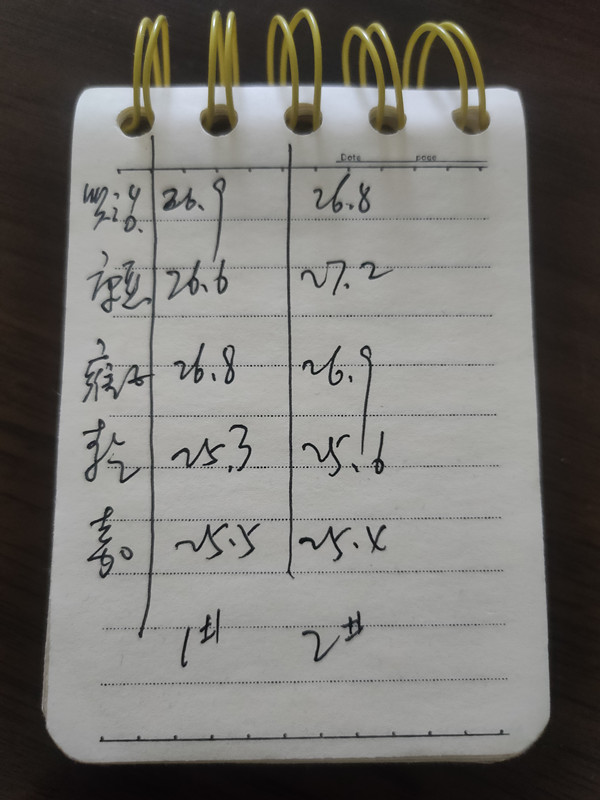 Date page
順治 26.9 26.8
康熙 26.6 27.2
雍正 26.8 26.9
乾 25.3 25.6
嘉 25.5 25.4
1# 2#